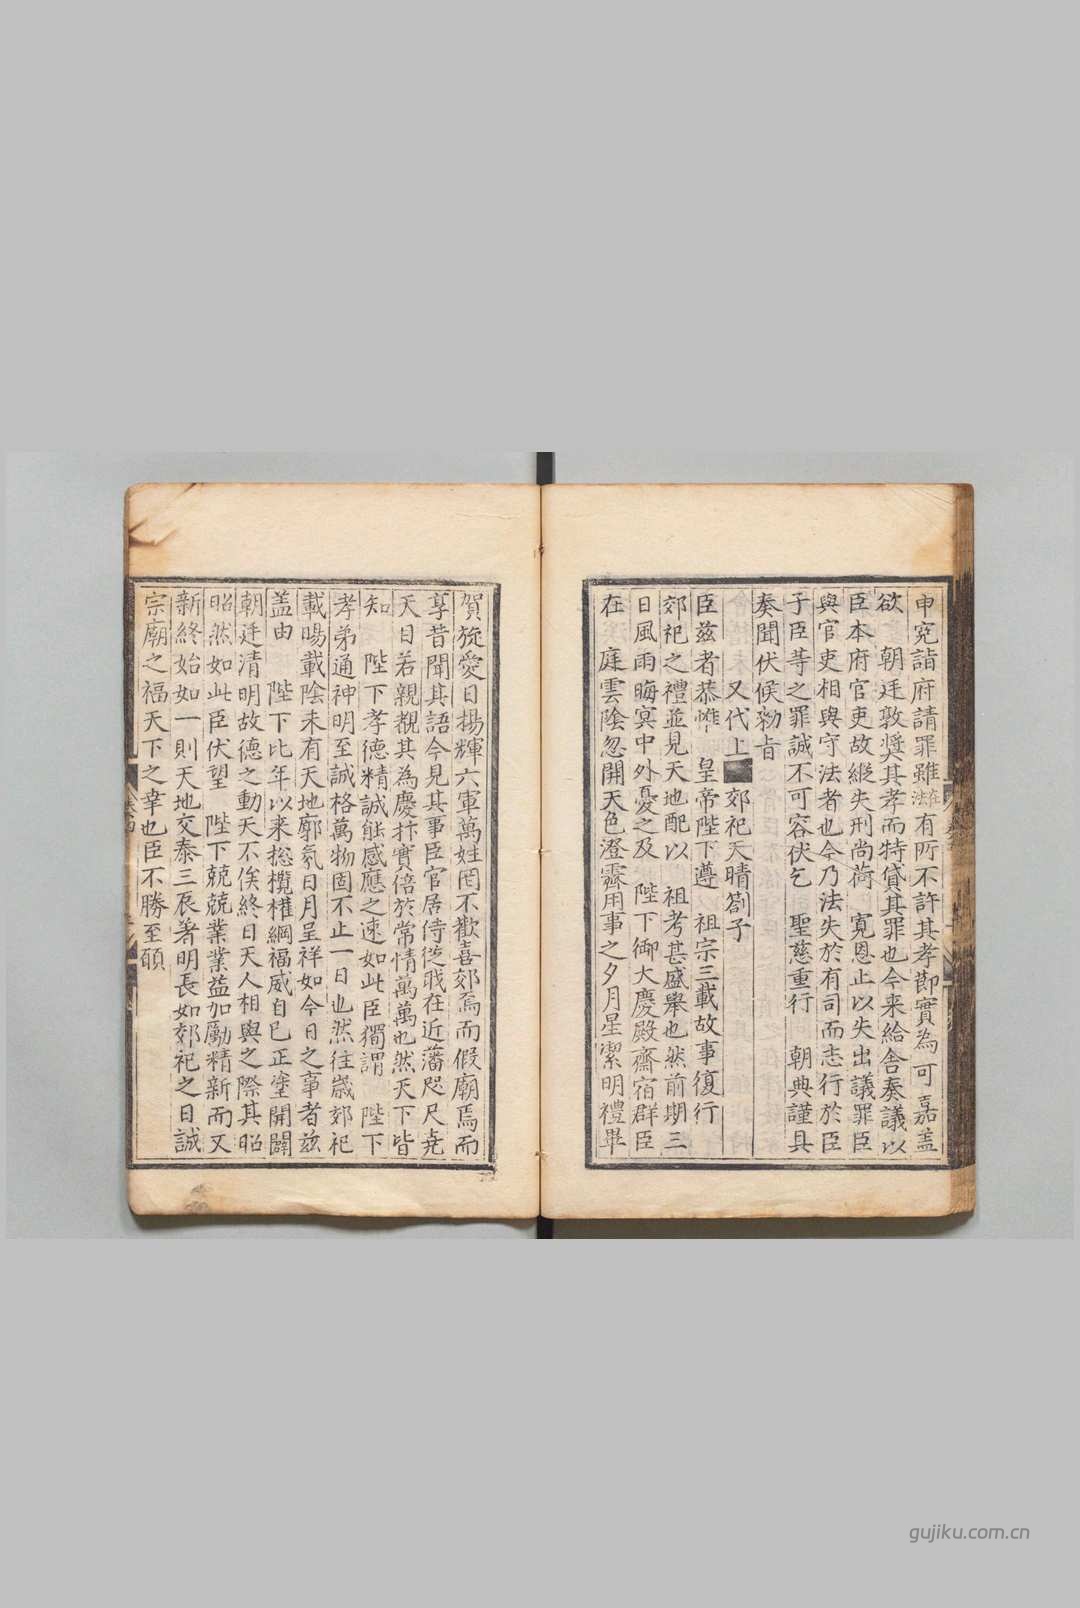 申寃詣府請罪雖在法有所不許其孝節實為可嘉盖
欲　朝廷敦奨其孝而特貸其罪也今来給舎奏議以
臣本府官吏故縱失刑尚荷　寛恩止以失出議罪臣
與官吏相與守法者也今乃法失於有司而志行於臣
子臣䓁之罪誠不可容伏乞　聖慈重行　朝典謹具
奏聞伏候勑旨
又代上　郊祀天晴劄子
臣兹者恭惟　皇帝陛下遵　祖宗三載故事復行
郊祀之禮並見天地配以　祖考甚盛舉也然前期三
日風雨晦㝠中外憂之及　陛下御大慶殿齋宿群臣
在　庭雲陰忽開天色澄霽用事之夕月星絜明禮畢
賀旋愛日揚輝六軍萬姓罔不歡喜郊焉而假廟焉而
享昔聞其語今見其事臣官居侍從戝在近藩咫尺尭
天日若親覩其為慶抃實倍於常情萬萬也然天下皆
知　陛下孝德精誠能感應之速如此臣獨謂　陛下
孝弟通神明至誠格萬物固不止一日也然往歳郊祀
載暘載陰未有天地廓氛日月呈祥如今日之事者兹
盖由　陛下比年以来捴欖權綱福威自已正塗開闢
朝廷清明故德之動天不俟終日天人相與之際其昭
昭然如此臣伏望　陛下兢兢業業益加勵精新而又
新終始如一則天地交泰三辰著明長如郊祀之日誠
宗廟之福天下之幸也臣不勝至願
gujiku.com.cn